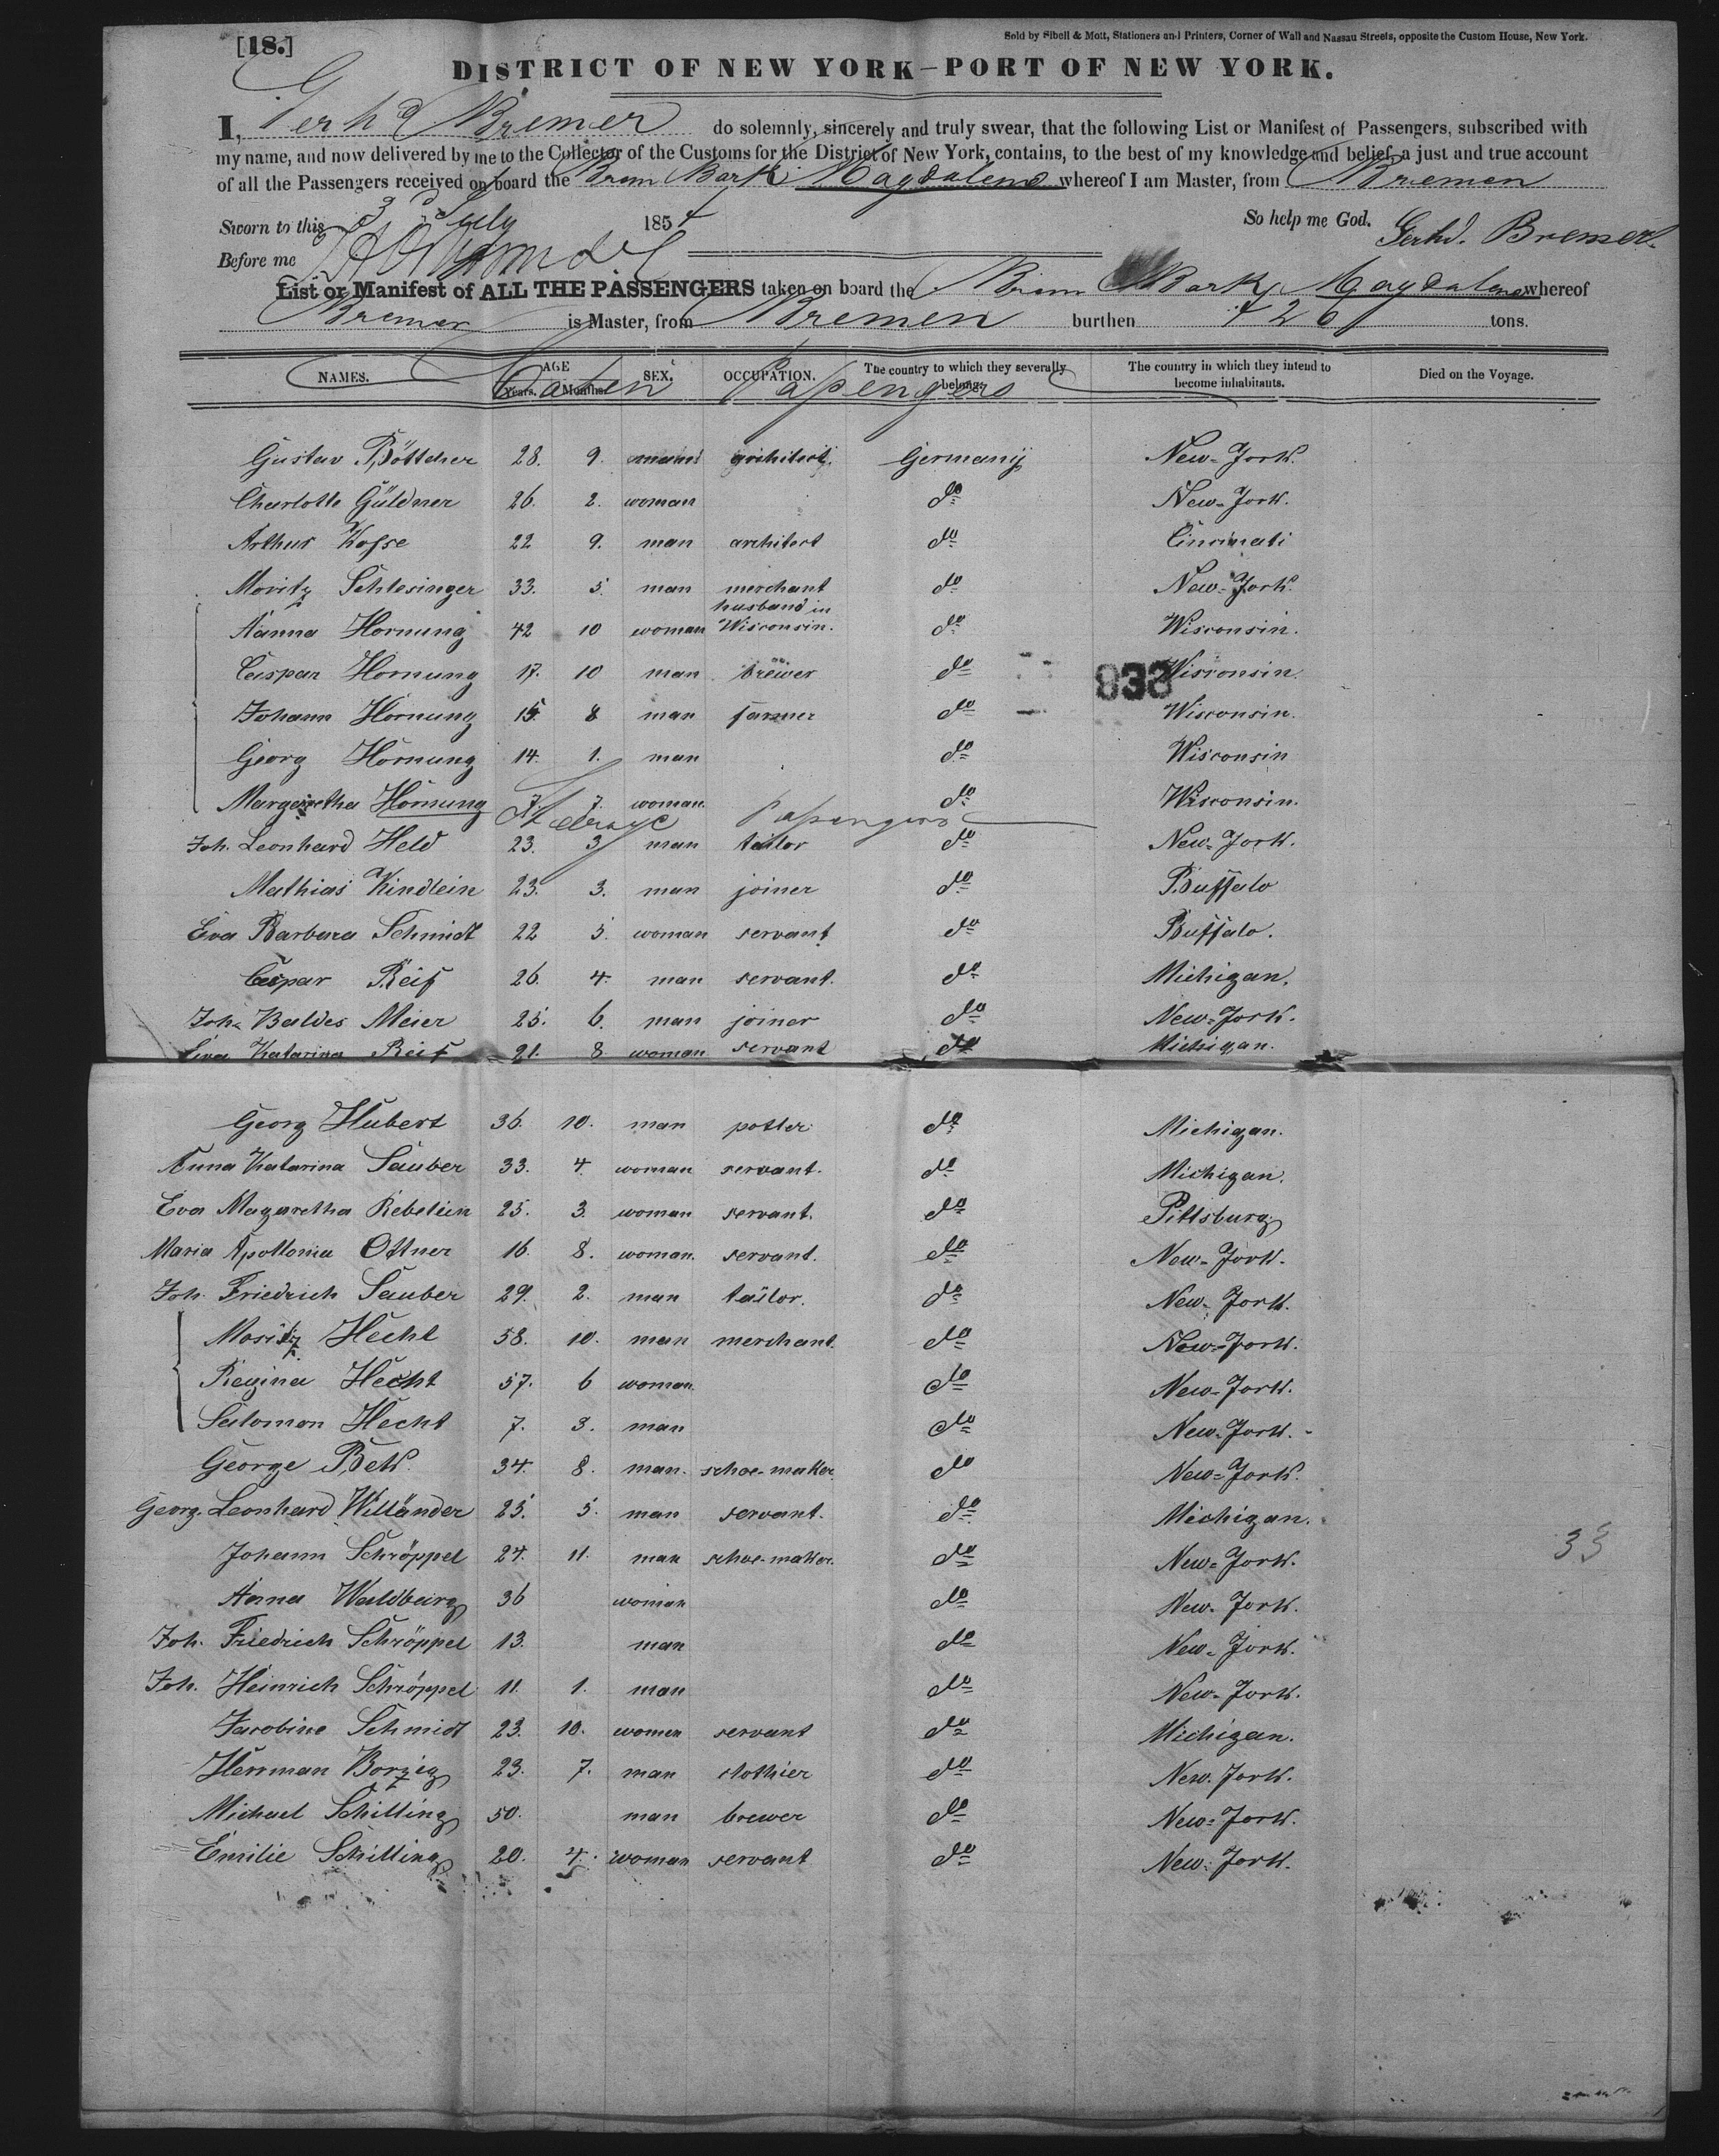 [18.]
Sold by Sibell & Mott, Stationers and Printers, Corner of Wall and Nassau Streets, opposite the Custom House, New York.
DISTRICT OF NEW YORK—PORT OF NEW YORK.
I, Gerhd Bremer do solemnly, sincerely and truly swear, that the following List or Manifest of Passengers, subscribed with
my name, and now delivered by me to the Collector of the Customs for the District of New York, contains, to the best of my knowledge and belief, a just and true account
of all the Passengers received on board the Brem Bark Magdalena whereof I am Master, from Bremen
Sworn to this 3d July 1854 So help me God. Gerhd. Bremer.
Before me
List or Manifest of ALL THE PASSENGERS taken on board the Brem Bark Magdalena whereof
Bremer is Master, from Bremen burthen 426 tons.
NAMES. AGE Years. Months. SEX. OCCUPATION. The country to which they severally belong. The country in which they intend to become inhabitants. Died on the Voyage.
Cajüten Passengers
Gustav Böttcher 28. 9. man architect. Germany New-York.
Charlotte Güldner 26. 2. woman do New-York.
Arthur Kosse 22 9. man architect do Cincinati
Moritz Schlesinger 33. 5. man merchant do New-York.
Nanna Hornung 42 10 woman husband in Wisconsin. do Wisconsin.
Caspar Hornung 17. 10 man brewer do Wisconsin.
938
Johann Hornung 15. 8 man farmer do Wisconsin.
Georg Hornung 14. 1. man do Wisconsin
Margaretha Hornung 7. 7. woman. do Wisconsin.
Steerage Passengers
Joh. Leonhard Held 23. 3 man tailor do New-York.
Mathias Kindlein 23. 3. man joiner do Buffalo
Eva Barbara Schmidt 22 5. woman servant do Buffalo.
Caspar Reif 26. 4. man servant. do Michigan.
Joh. Baldes Meier 25. 6. man joiner do New-York.
Eva Katarina Reif 21. 8. woman servant do Michigan.
Georg Hubert 36. 10. man potter do Michigan.
Anna Katarina Sauber 33. 4. woman servant. do Michigan.
Eva Magaretha Rebelein 25. 3. woman servant. do Pittsburg
Maria Apollonia Ottner 16. 8. woman. servant. do New-York.
Joh. Friedrich Sauber 29. 2. man tailor. do New-York.
Moritz Hecht 58. 10. man merchant. do New-York.
Regina Hecht 57. 6 woman. do New-York.
Salomon Hecht 7. 3. man do New-York.
George Bek 34. 8. man. schoe-maker. do New-York.
Georg. Leonhard Willänder 25. 5. man servant. do Michigan.
Johann Schröppel 24. 11. man schoe-maker. do New-York.
33
Anna Waldburg 36 woman do New-York.
Joh. Friedrich Schröppel 13. man do New-York.
Joh. Heinrich Schröppel 11. 1. man do New-York.
Jacobine Schmidt 23. 10. women servant do Michigan.
Herrman Borzig 23. 7. man clothier do New-York.
Michael Schilling 50. man brewer do New-York.
Emilie Schilling 20. 4. woman servant do New-York.